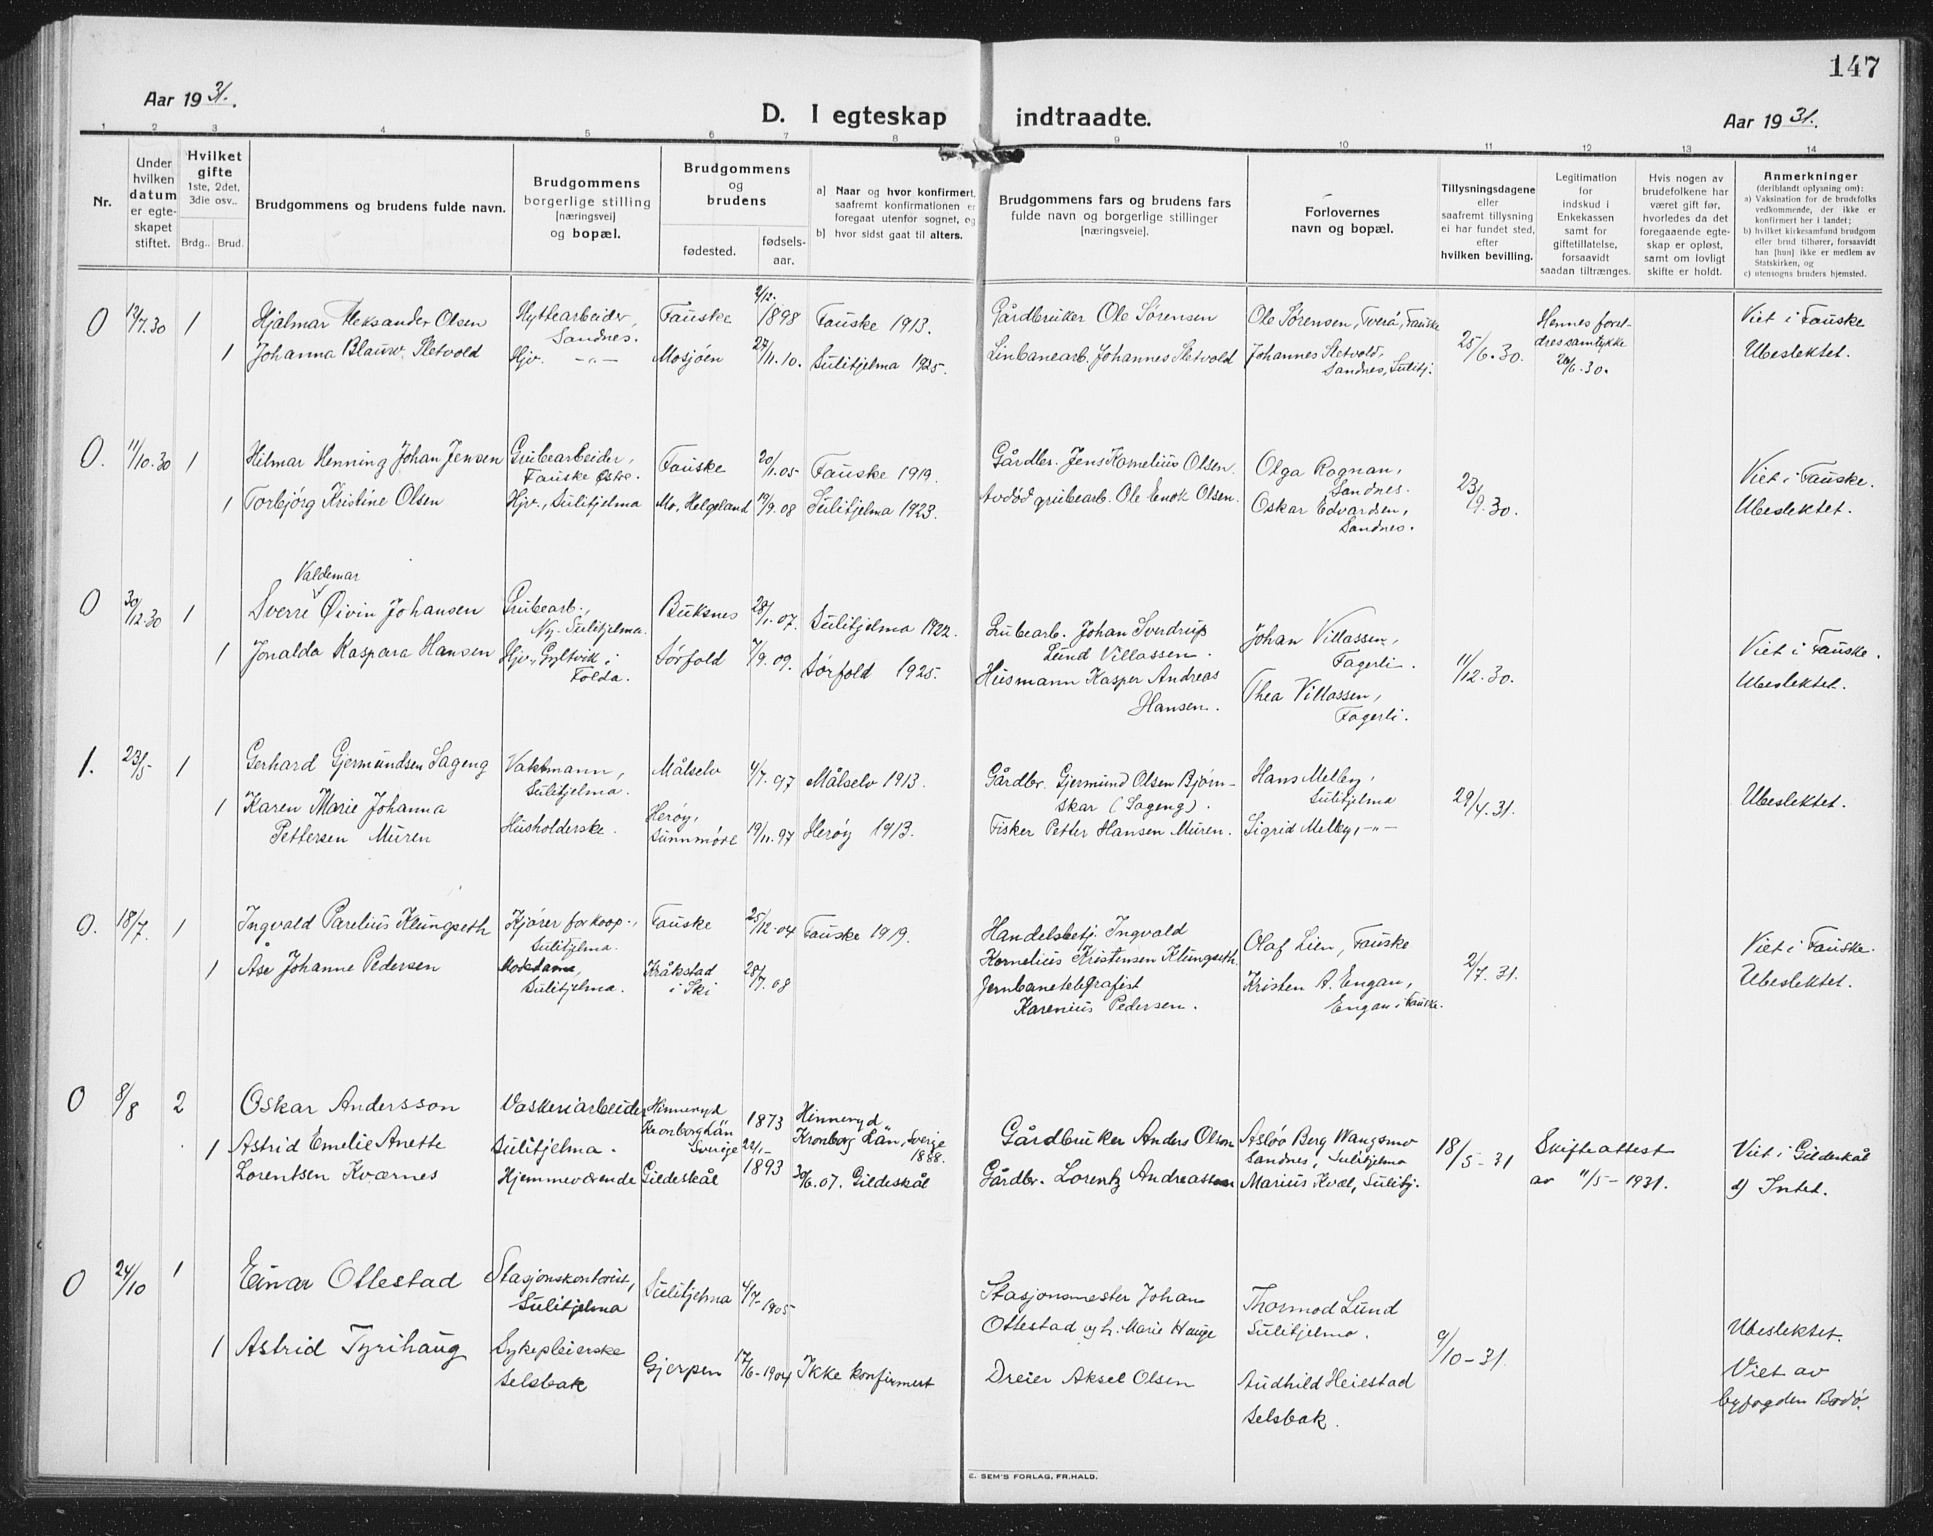 147
Aar 19 31.
D. I egteskap indtraadte.
Aar 19 31.
1 2 3 4 5 6 7 8 9 10 11 12 13 14
Nr.
Under
hvilken
datum
er egte-
skapet
stiftet.
Hvilket
gifte
1ste, 2det,
3die osv..
Brdg.. Brud.
Brudgommens og brudens fulde navn.
Brudgommens
borgerlige stilling
[næringsvei]
og bopæl.
Brudgommens
og
brudens
fødested.
fødsels-
aar.
a] Naar og hvor konfirmert,
saafremt konfirmationen er
foregaat utenfor sognet, og
b] hvor sidst gaat til alters.
Brudgommens fars og brudens fars
fulde navn og borgerlige stillinger
[næringsveie].
Forlovernes
navn og bopæl.
Tillysningsdagene
eller
saafremt tillysning
ei har fundet sted,
efter
hvilken bevilling.
Legitimation
for
indskud i
Enkekassen
samt for
giftetillatelse,
forsaavidt
saadan tiltrænges.
Hvis nogen av
brudefolkene har
været gift før,
hvorledes da det
foregaaende egte-
skap er opløst,
samt om lovligt
skifte er holdt.
Anmerkninger
(deriblandt oplysning om):
a) Vaksination for de brudefolks
vedkommende, der ikke er
konfirmert her i landet;
b) hvilket kirkesamfund brudgom
eller brud tilhører, forsaavidt
han [hun] ikke er medlem av
Statskirken, og
c) utensogns bruders hjemsted.
0 12/7.30 1 Hjalmar Aleksander Olsen Hyttearbeider, Sandnes. Fauske 2/12. 1898 Fauske 1913. Gårdbruker Ole Sørensen Ole Sørensen, Tverå, Fauske
1 Johanna Blausv. Sletvold Hjv. -"- Mosjøen 27/11.10. Sulitjelma 1925. Linbanearb. Johannes Sletvold Johannes Sletvold, Sandnes, Sulitj.
25/6.30.
Hennes forel-
dres samtykke
20/6.30.
Viet i Fauske
Ubeslektet.
0. 11/10.30 1 Hilmar Henning Johan Jensen Grubearbeider, Fauske Østre. Fauske 20/1.05 Fauske 1919. Gårdbr. Jens Kornelius Olsen. Olga Rognan, Sandnes.
1 Torbjørg Kristine Olsen Hjv., Sulitjelma Mo, Helgeland 19/9.08 Sulitjelma 1923. Avdød grubearb. Ole Enok Olsen. Oskar Edvardsen, Sandnes.
23/9.30.
Viet i Fauske.
Ubeslektet.
Valdemar
0 30/12.30 1 Sverre Øivin Johansen Grubearb., Ny-Sulitjelma. Buksnes 28/1.07. Sulitjelma 1922. Grubearb. Johan Sverdrup Lund Villassen. Johan Villassen, Fagerli.
1 Jonalda Kaspara Hansen Hjv., Gyltvik i Folda. Sørfold 7/9.09. Sørfold 1925. Husmann Kasper Andreas Hansen. Thea Villassen, Fagerli.
11/12.30.
Viet i Fauske.
Ubeslektet.
1. 23/5 1 Gerhard Gjermundsen Sageng Vaktmann, Sulitjelma. Målselv 4/7.97 Målselv 1913. Gårdbr. Gjermund Olsen Bjørn-
skar (Sageng). Hans Melby, Sulitjelma
1 Karen Marie Johanna
Pettersen Muren Husholderske. Herøy, Sunnmøre 19/11.97 Herøy 1913. Fisker Petter Hansen Muren. Sigrid Melby, -"-
29/4.31.
Ubeslektet.
0. 18/7. 1 Ingvald Parelius Klungseth Kjører for koop., Sulitjelma. Fauske 25/12.04 Fauske 1919. Handelsbetj. Ingvald
Kornelius Kristensen Klungseth. Olaf Lien, Fauske
1 Åse Johanne Pedersen Motedame, Sulitjelma. Kråkstad i Ski 28/7.08 Jernbanetelegrafist
Karenius Pedersen. Kristen A. Engan, Engan i Fauske.
2/7.31.
Viet i Fauske.
Ubeslektet.
0 8/8 2 Oskar Andersson Vaskeriarbeider Sulitjelma. Hinneryd Kronborg Län Sverige 1873 Hinneryd
Kronborg Län, Sverige
1888. Gårdbruker Anders Olson Asløv Berg Wangsmo
Sandnes, Sulitjelma
1 Astrid Emelie Anette
Lorentsen Kværnes Hjemmeværende Gildeskål 22/1- 1893 30/6.07. Gildeskål Gårdbr. Lorentz Andreassen Marius Kvæl, Sulitj.
18/5-31
Skifteattest
av 11/5-1931.
Viet i Gildeskål
d) Intet.
0 24/10 1 Einar Ottestad Stasjonskontorist, Sulitjelma Sulitjelma 4/7-1905 Stasjonsmester Johan
Ottestad og h. Marie Hauge Thormod Lund
Sulitjelma.
1 Astrid Tyrihaug Sykepleierske
Selsbak Gjerpen 17/6-1904 Ikke konfirmert Dreier Aksel Olsen Audhild Heiestad
Selsbak.
9/10-31.
Ubeslektet.
Viet av
byfogden Bodø.
E. SEM'S FORLAG, FR.HALD.